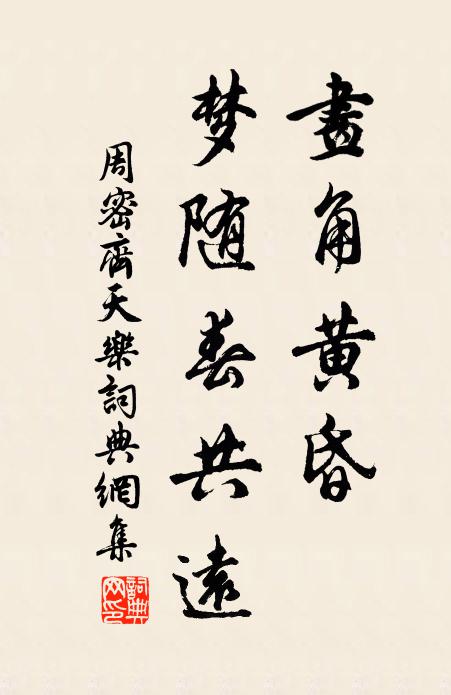 畫角黄昏
梦随春共遠
周密齊天樂詞典網集
詞典網印